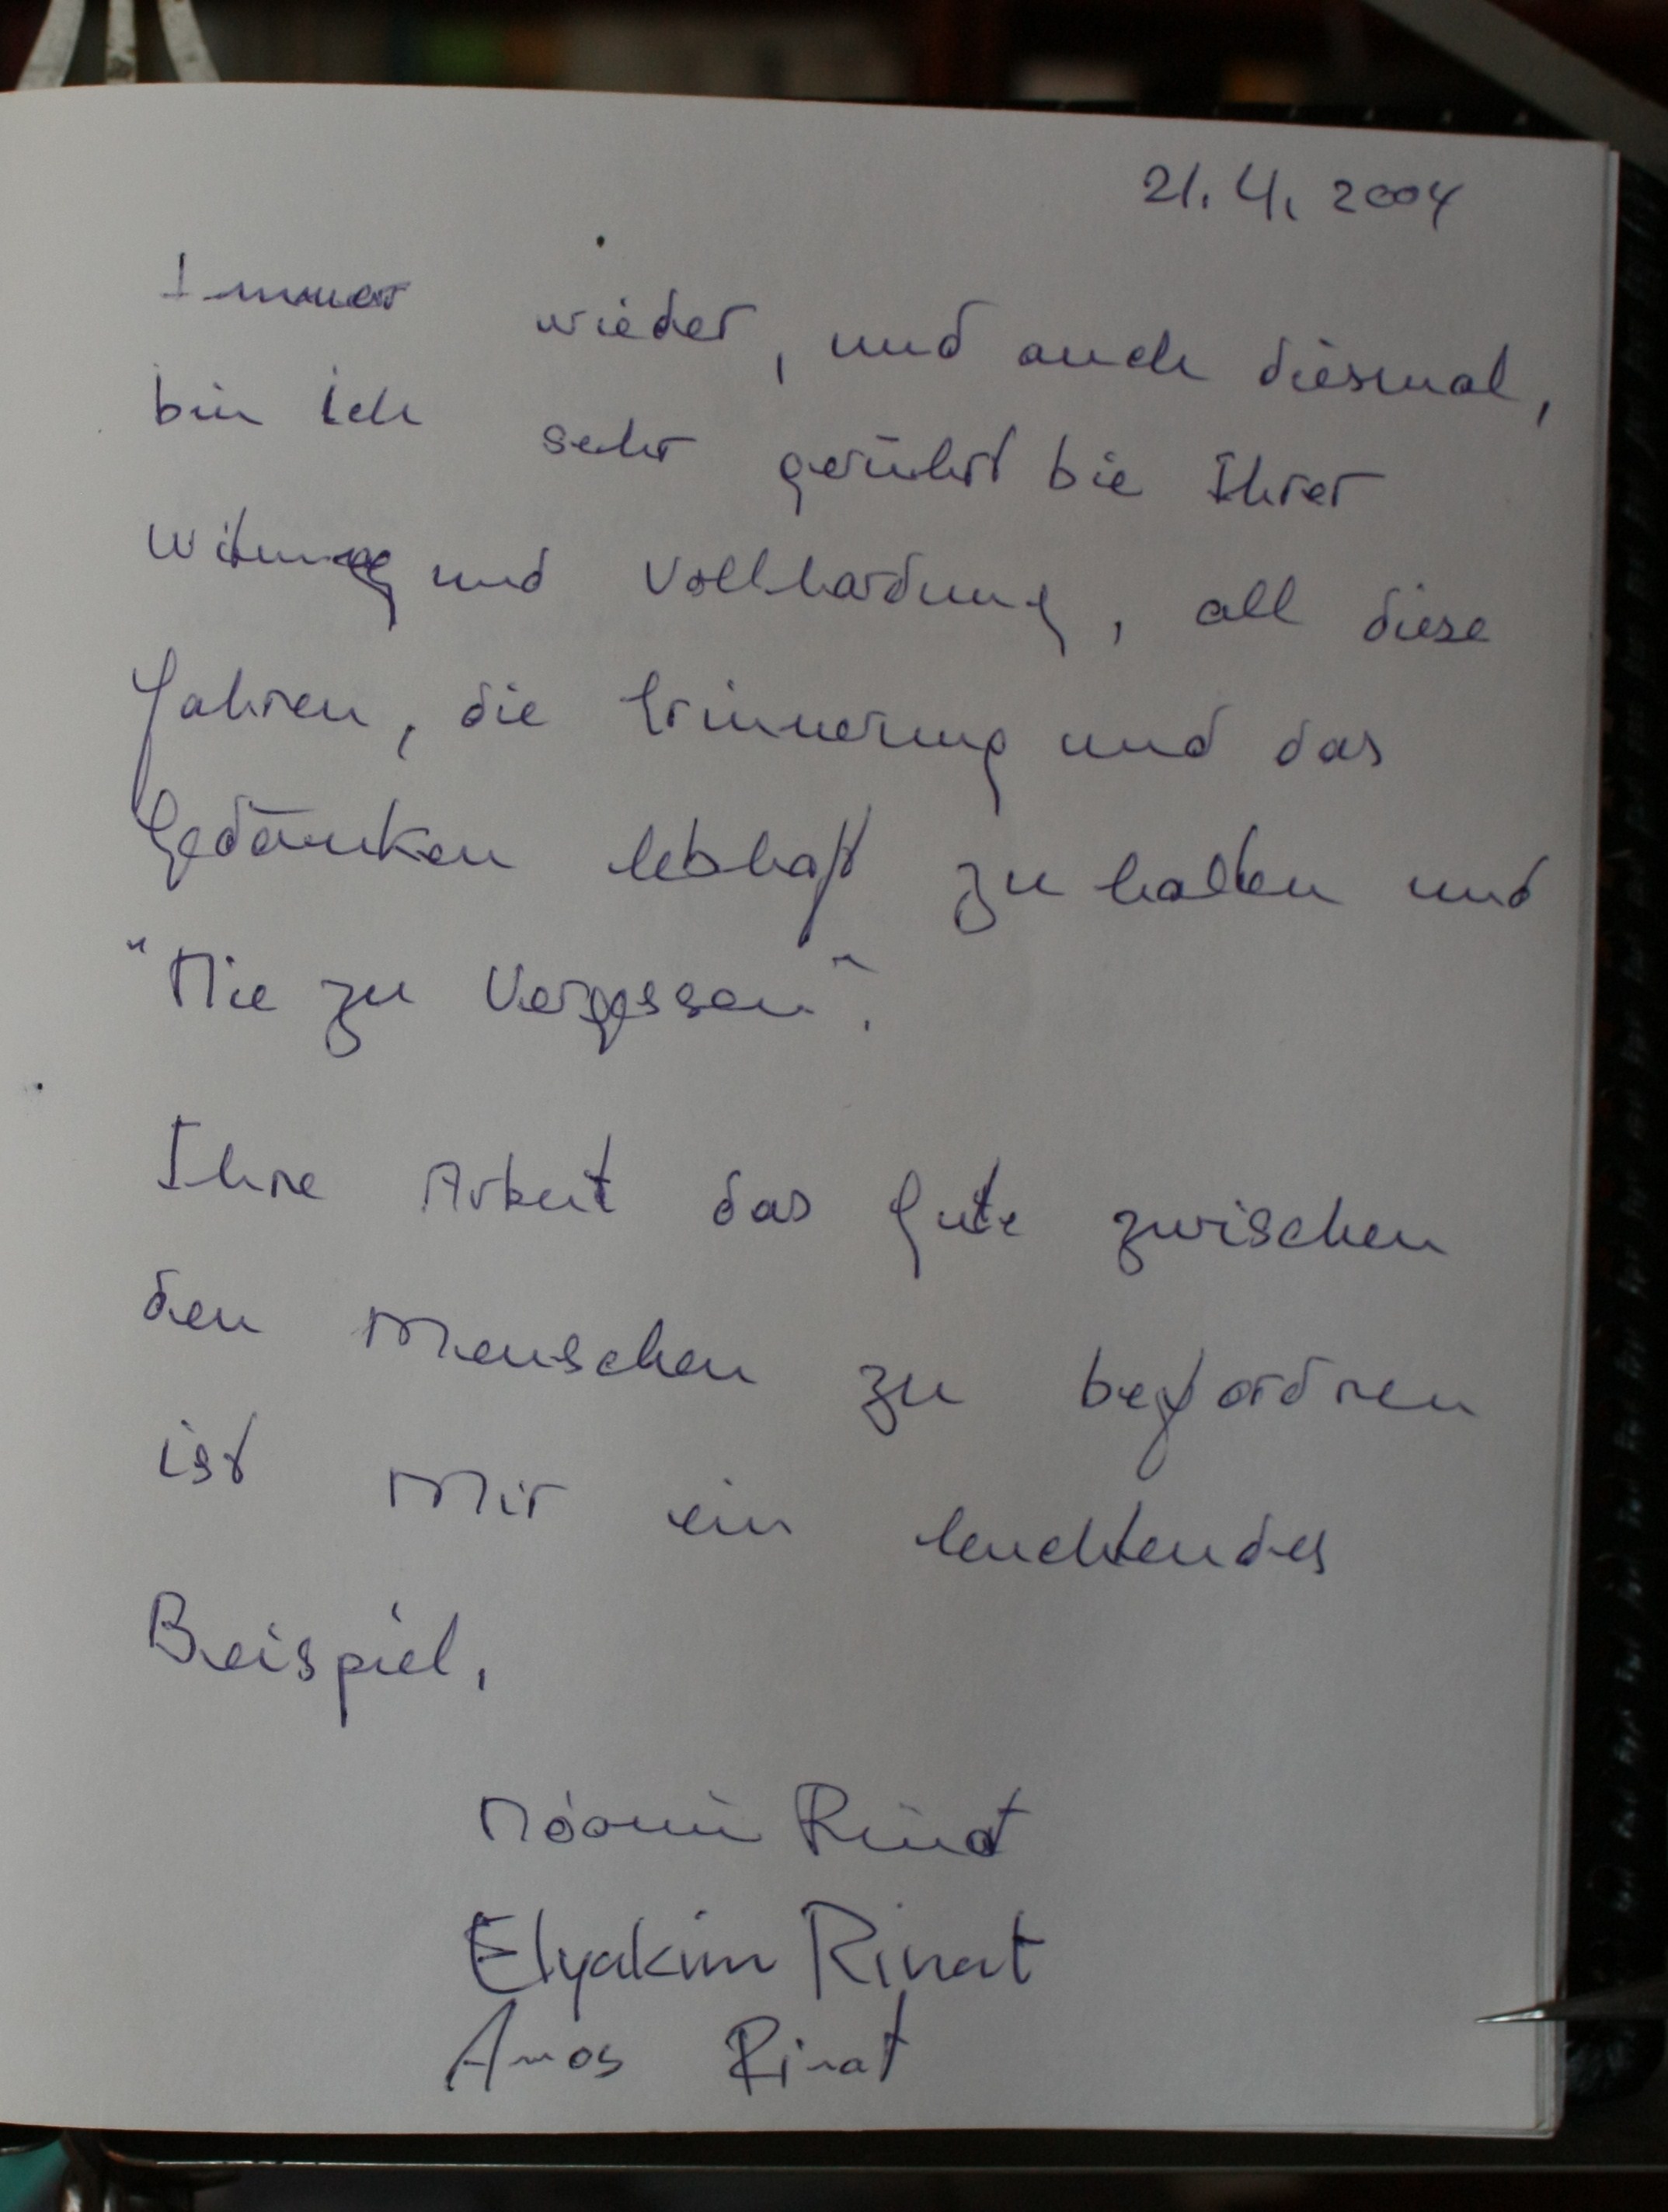 21.4.2004
Immer wieder, und auch diesmal,
bin ich sehr gerührt bie Ihrer
Witmung und Vollhardung, all diese
Jahren, die Erinnerung und das
Gedänken lebhaft zu halten und
"Nie zu Vergessen".
Ihre Arbeit das Gute zwischen
den Menschen zu befordren
ist Mir ein leuchtendes
Beispiel,
Noomi Rinat
Elyakim Rinat
Amos Rinat